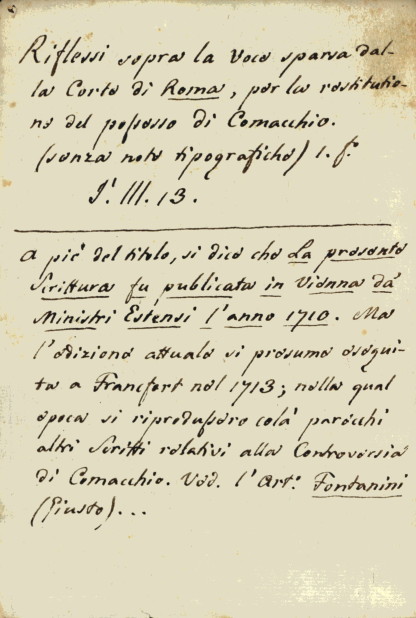 Riflessi sopra la Voce sparsa dal-
la Corte di Roma, per la restituzio-
ne del possesso di Comacchio.
(senza note tipografiche) 1. f.º
J. III. 13.
A piè del titolo, si dice che La presente
Scrittura fu publicata in Vienna da'
Ministri Estensi l'anno 1710. Ma
l'edizione attuale si presume esegui-
ta a Francfort nel 1713; nella qual
epoca si riprodussero colà parecchi
altri Scritti relativi alla Controversia
di Comacchio. Ved. l'Art.º Fontanini
(Giusto)...